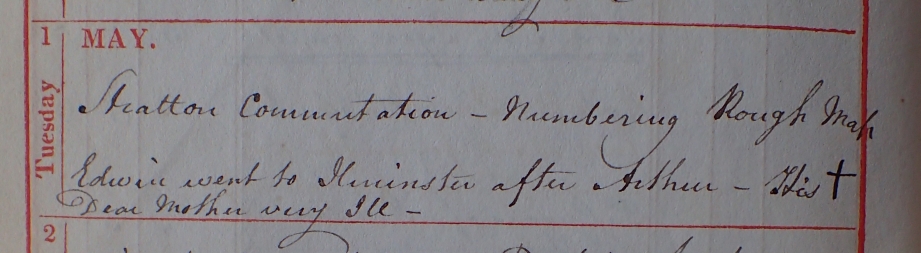 1 MAY.
Tuesday
Stratton Commutation - Numbering Rough Map
Edwin went to Ilminster after Arthur - His †
Dear Mother very Ill -
2